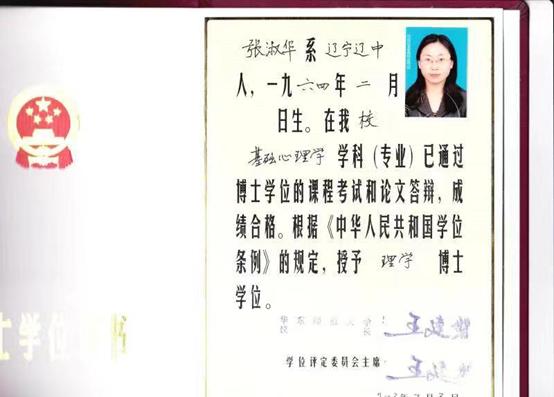 张淑华 系 辽宁辽中
人，一九六四年 二 月
日生。在我 校
基础心理学 学科（专业）已通过
博士学位的课程考试和论文答辩，成
绩合格。根据《中华人民共和国学位
条例》的规定，授予 理学 博士
学位。
学位评定委员会主席
士学位 书